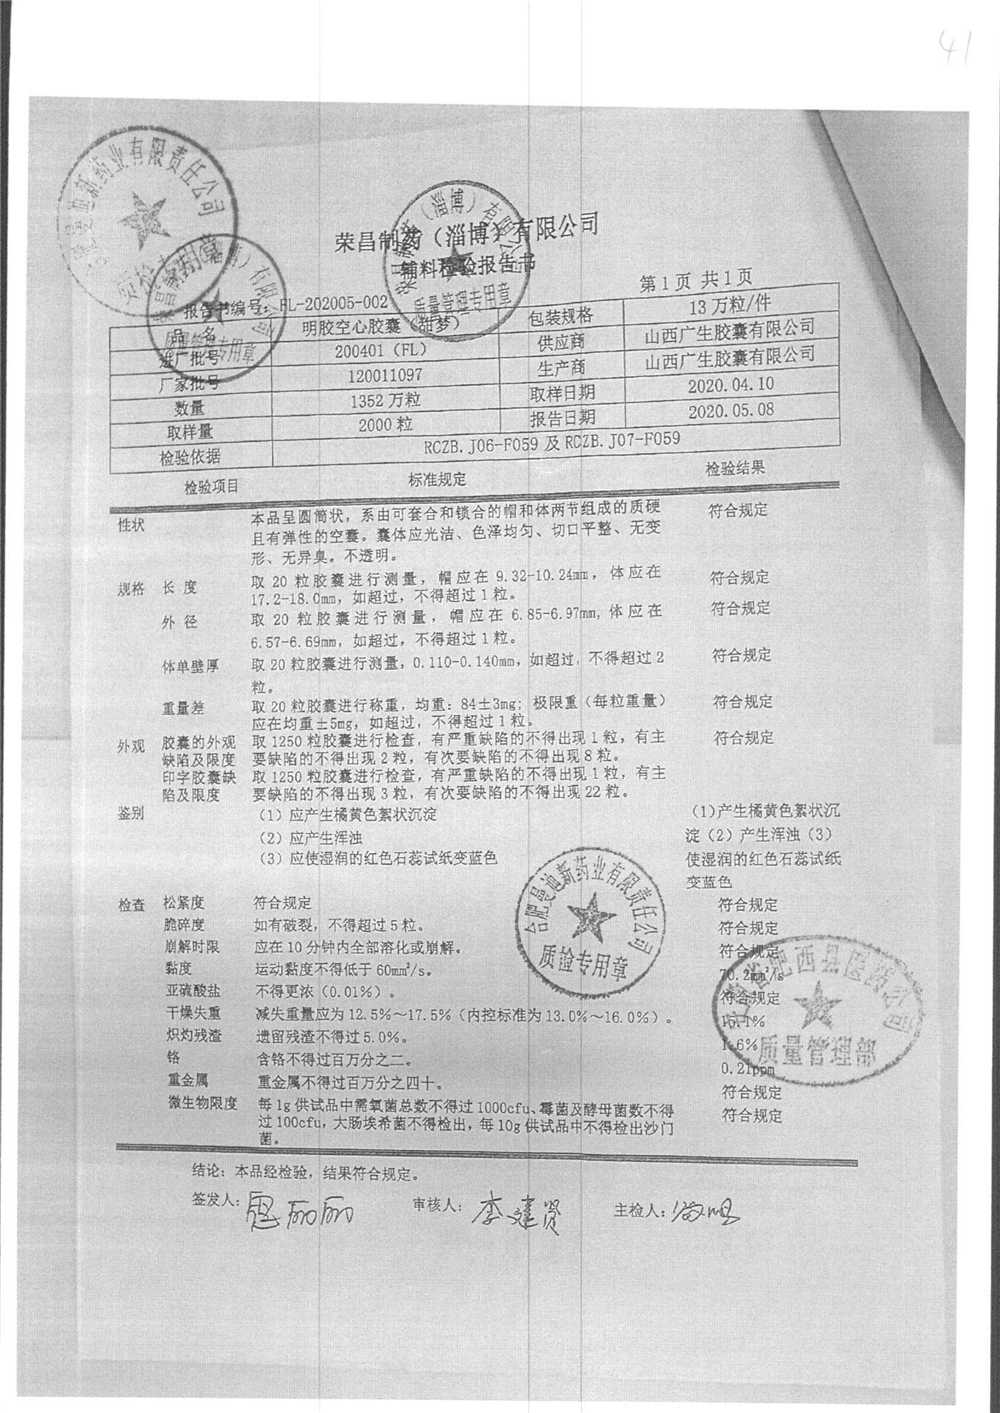 41
荣昌制药（淄博）有限公司
辅料检验报告书
第1页 共1页
报告书编号：FL-202005-002
品 名 明胶空心胶囊（甜梦） 包装规格 13万粒/件
进厂批号 200401（FL） 供应商 山西广生胶囊有限公司
厂家批号 120011097 生产商 山西广生胶囊有限公司
数量 1352万粒 取样日期 2020.04.10
取样量 2000粒 报告日期 2020.05.08
检验依据 RCZB.J06-F059及RCZB.J07-F059
检验项目 标准规定 检验结果
性状 本品呈圆筒状，系由可套合和锁合的帽和体两节组成的质硬 符合规定
且有弹性的空囊。囊体应光洁、色泽均匀、切口平整、无变
形、无异臭。不透明。
规格 长 度 取20粒胶囊进行测量，帽应在9.32-10.24mm，体应在 符合规定
17.2-18.0mm，如超过，不得超过1粒。
外 径 取20粒胶囊进行测量，帽应在6.85-6.97mm,体应在 符合规定
6.57-6.69mm，如超过，不得超过1粒。
体单壁厚 取20粒胶囊进行测量，0.110-0.140mm，如超过，不得超过2 符合规定
粒。
重量差 取20粒胶囊进行称重，均重：84±3mg；极限重（每粒重量） 符合规定
应在均重±5mg，如超过，不得超过1粒。
外观 胶囊的外观 取1250粒胶囊进行检查，有严重缺陷的不得出现1粒，有主 符合规定
缺陷及限度 要缺陷的不得出现2粒，有次要缺陷的不得出现8粒。
印字胶囊缺 取1250粒胶囊进行检查，有严重缺陷的不得出现1粒，有主
陷及限度 要缺陷的不得出现3粒，有次要缺陷的不得出现22粒。
鉴别 （1）应产生橘黄色絮状沉淀 （1)产生橘黄色絮状沉
（2）应产生浑浊 淀（2）产生浑浊（3）
（3）应使湿润的红色石蕊试纸变蓝色 使湿润的红色石蕊试纸
变蓝色
检查 松紧度 符合规定 符合规定
脆碎度 如有破裂，不得超过5粒。 符合规定
崩解时限 应在10分钟内全部溶化或崩解。 符合规定
黏度 运动黏度不得低于60mm²/s。 70.2mm²/s
亚硫酸盐 不得更浓（0.01%）。 符合规定
干燥失重 减失重量应为12.5%～17.5%（内控标准为13.0%～16.0%）。
炽灼残渣 遗留残渣不得过5.0%。 1.6%
铬 含铬不得过百万分之二。 0.21ppm
重金属 重金属不得过百万分之四十。 符合规定
微生物限度 每1g供试品中需氧菌总数不得过1000cfu、霉菌及酵母菌数不得 符合规定
过100cfu，大肠埃希菌不得检出，每10g供试品中不得检出沙门
菌。
结论：本品经检验，结果符合规定。
签发人： 审核人：李建贤 主检人：
合肥曼迪新药业有限责任公司
质检专用章
质量管理专用章
肥西县医药公司
质量管理部